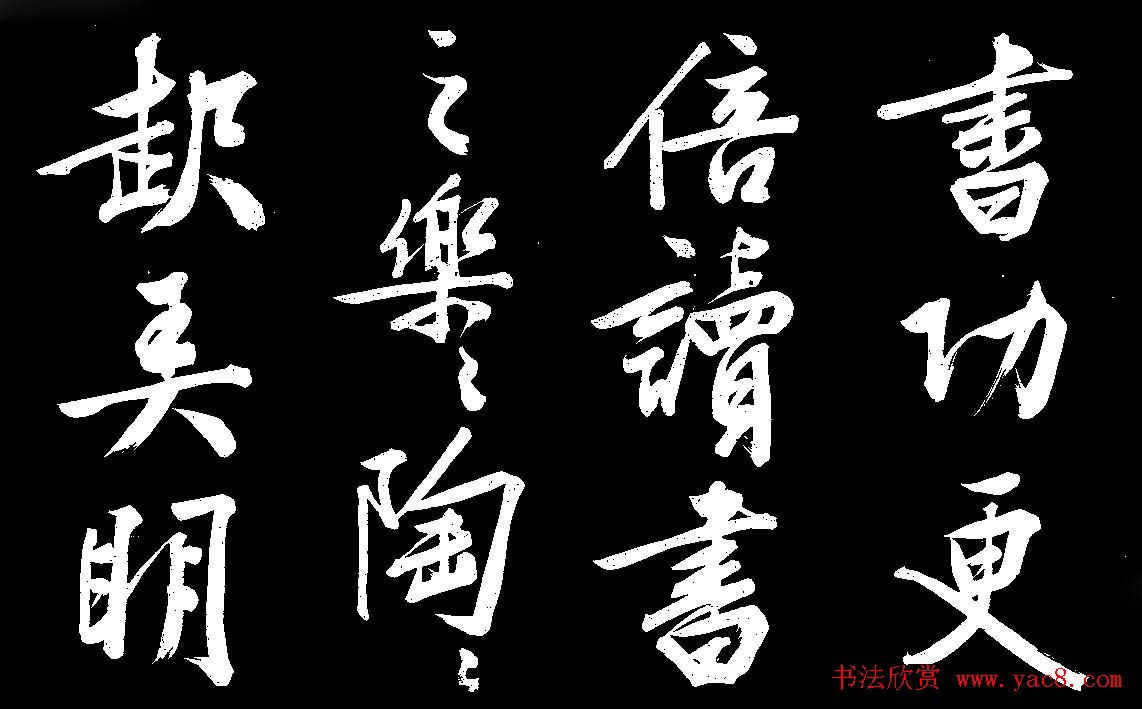 書功更
倍讀書
之樂〻陶〻
起弄明
书法欣赏 www.yac8.com